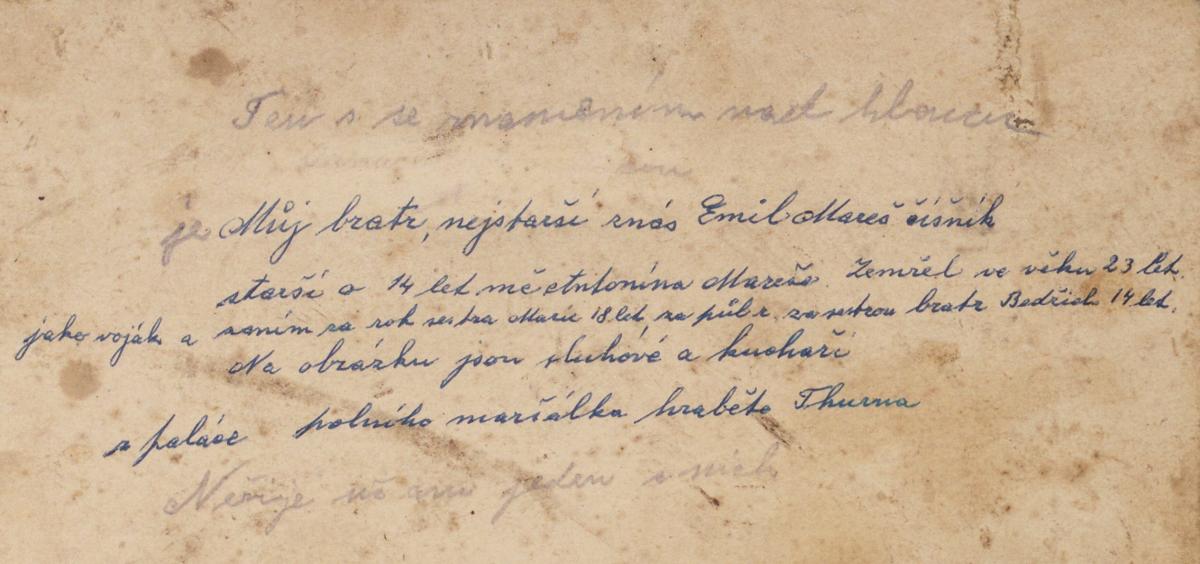 Ten s se znamením nad hlavou
je Můj bratr, nejstarší znás Emil Mareš číšník
starší o 14 let mě Antonína Mareše. Zemřel ve věku 23 let.
jako voják a zaním za rok sestra Marie 18 let, za půl r. za sestrou bratr Bedřich 14 let.
Na obrázku jsou sluhové a kuchaři
z paláce polního maršálka hraběte Thurna
Nežije už ani jeden z nich